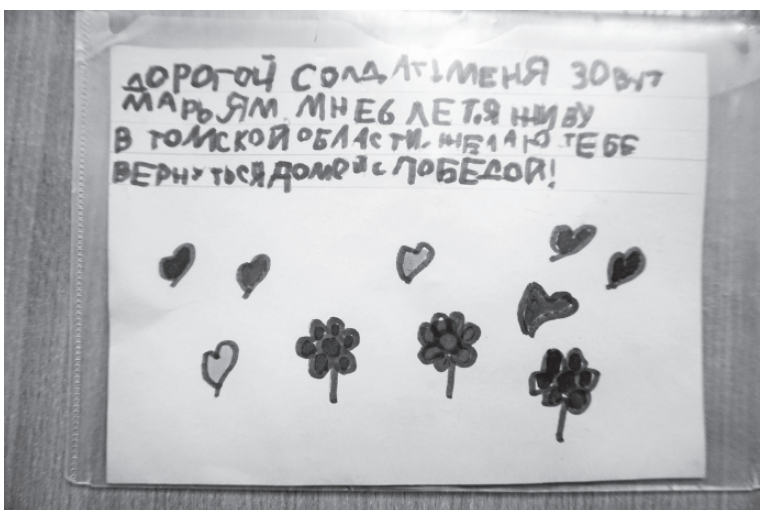 ДОРОГОЙ СОЛДАТ! МЕНЯ ЗОВУТ
МАРЬЯМ. МНЕ 6 ЛЕТ. Я ЖИВУ
В ТОМСКОЙ ОБЛАСТИ. ЖЕЛАЮ ТЕБЕ
ВЕРНУТЬСЯ ДОМОЙ С ПОБЕДОЙ!